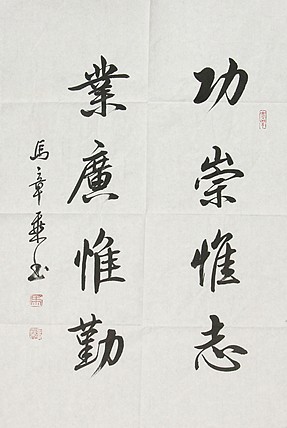 功崇惟志
業廣惟勤
馬章乘书